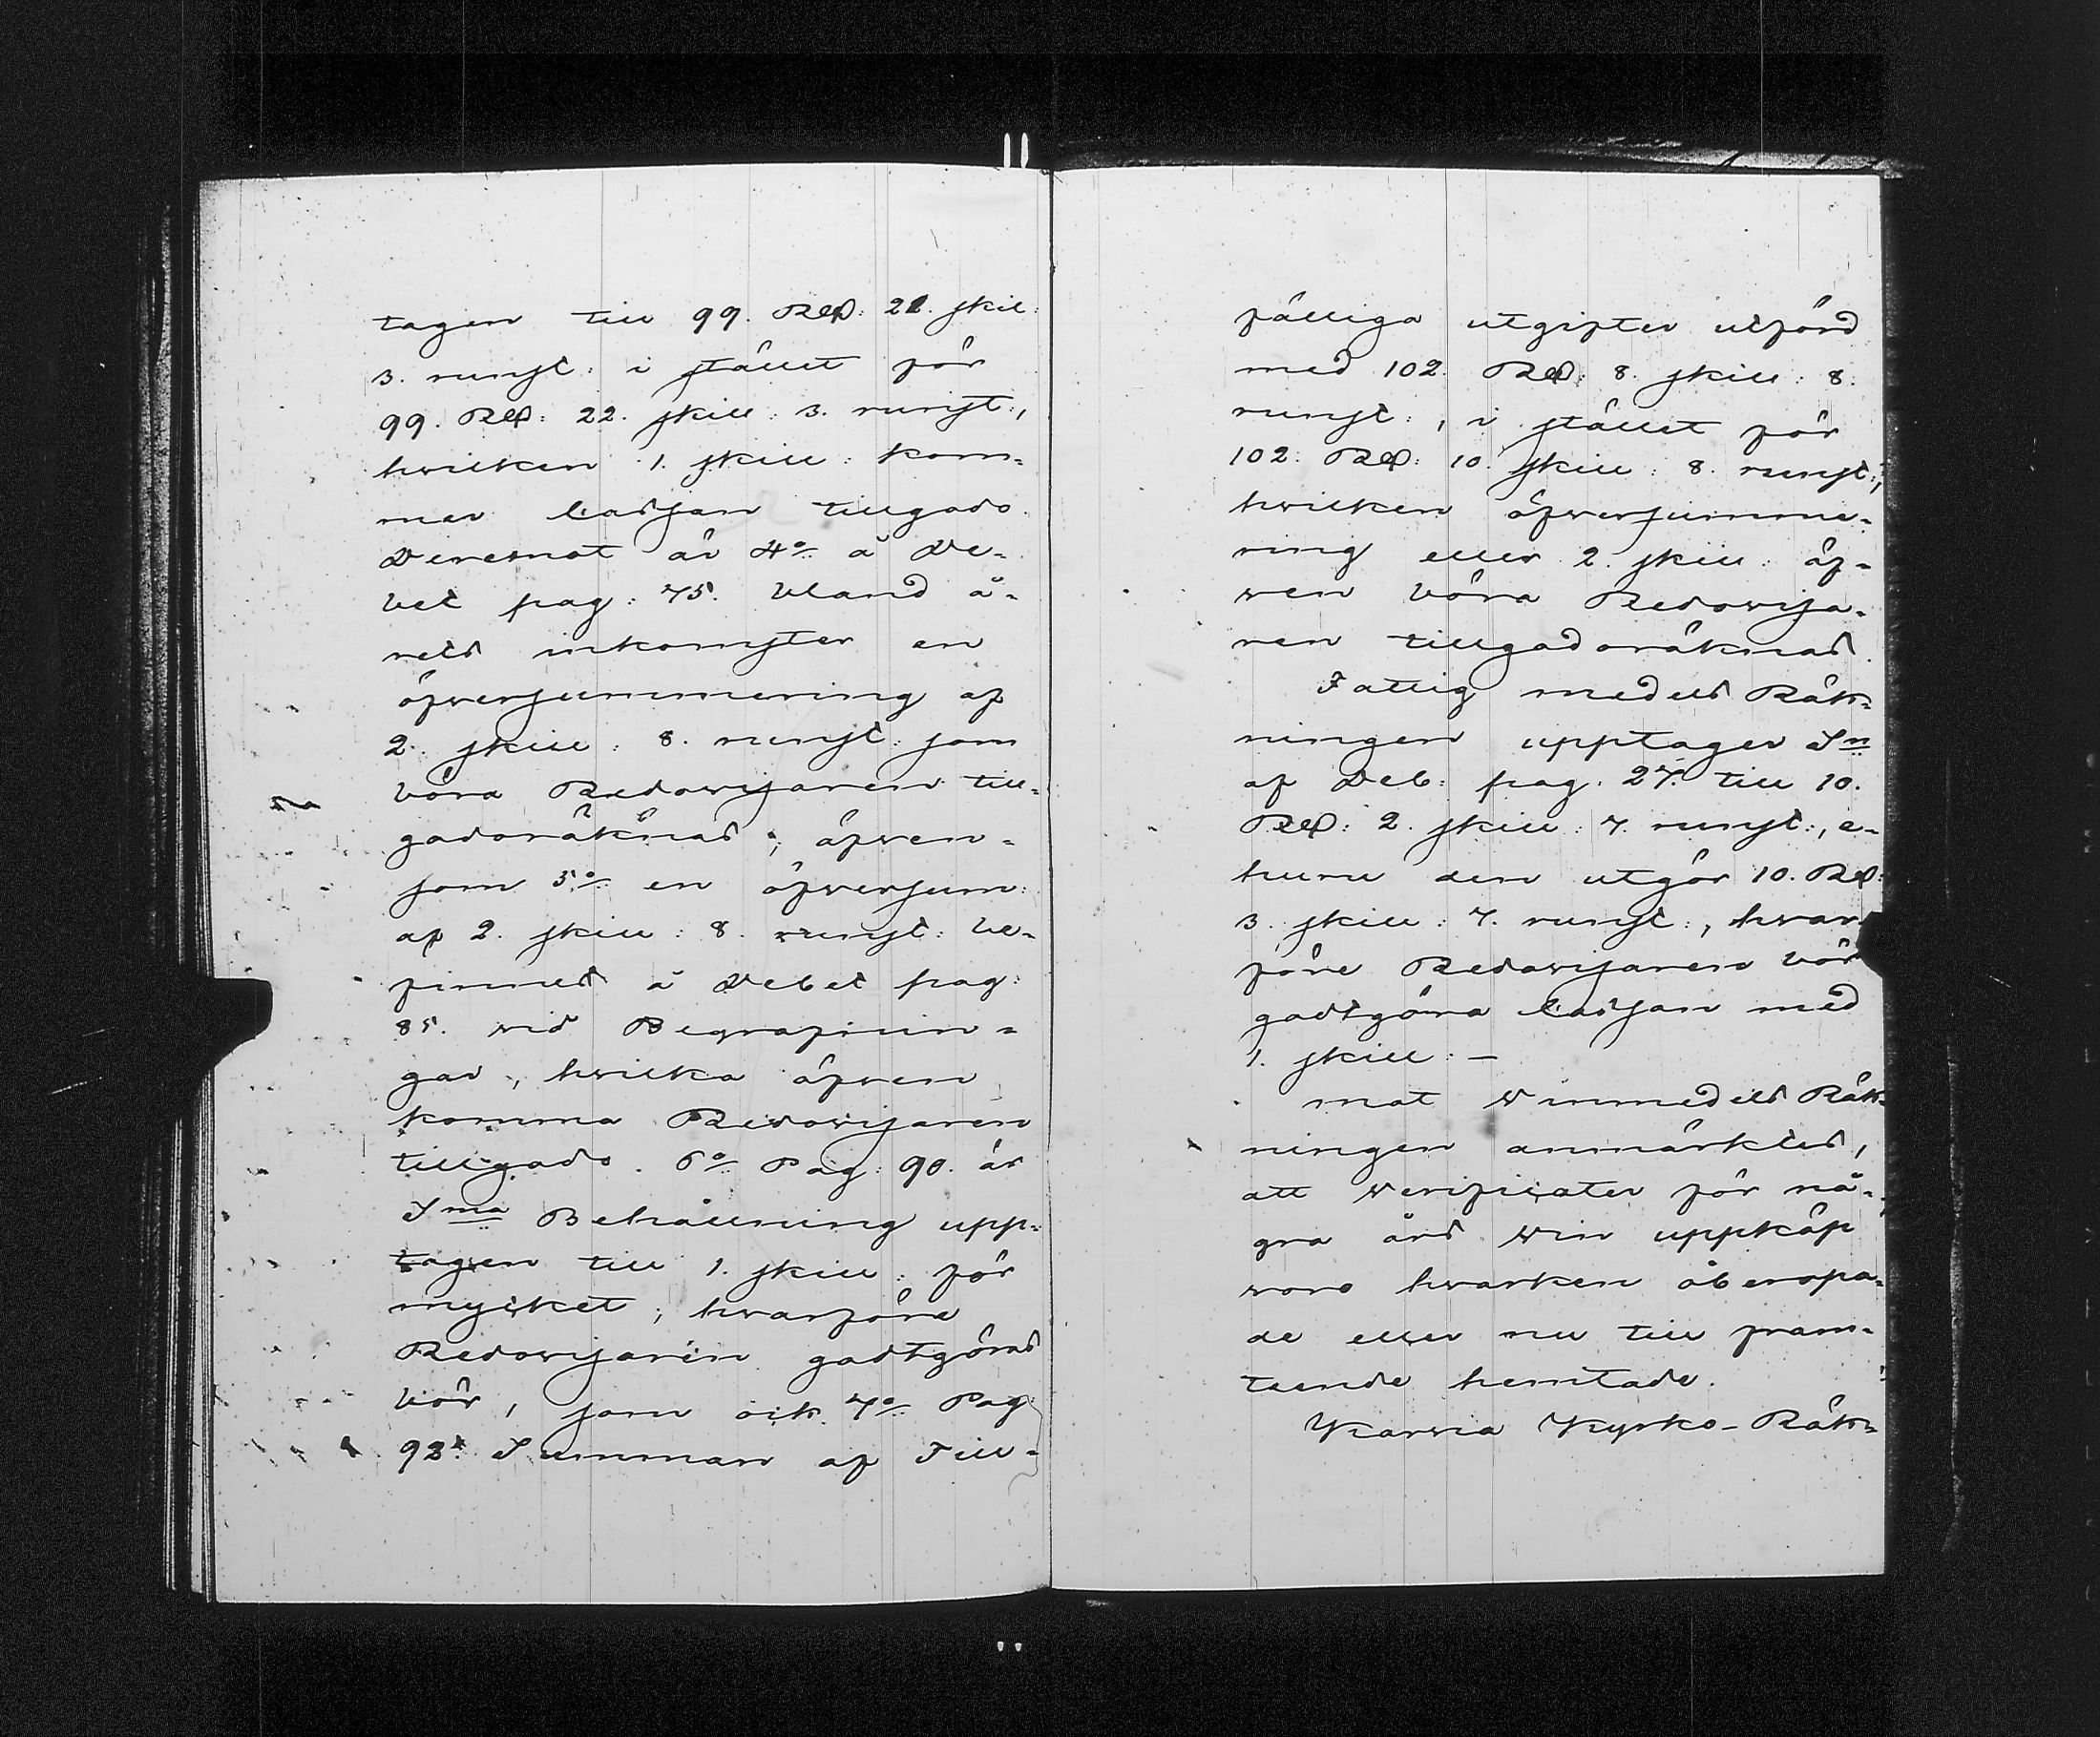 tagen till 99. Rd: 21. skil:
3. runst: i stället för
99. Rd: 22. skill: 3. runst:,
hvilken 1. skill: kom-
mer Cassan tillgodo.
Deremot är 4:o å De-
bet pag: 75. bland å-
rets inkomster en
öfversummering af
2. skill: 8. runst: som
böra Redovisaren till-
godoräknas; äfven-
som 5:o en öfversum:
af 2. skill: 8. runst: be-
finnes å Debet pag:
85. vid Begrafnin-
gar, hvilka äfven
komma Redovisaren
tillgodo. 6:o Pag: 90. är
S:ma Behållning upp-
tagen till 1. skill: för
mycket, hvarföre
Redovisaren godtgöras
bör, som ock 7:o Pag:
92. Summan af Till-
fälliga utgifter utförd
med 102. Rd: 8. skill: 8.
runst:, i stället för
102. Rd: 10. skill: 8. runst:,
hvilken öfversumme-
ring eller 2. skill: äf-
ven böra Redovisa-
ren tillgodoräknas.
Fattig medels Räk-
ningen upptager S:n
af Deb: pag. 27. till 10.
Rd: 2. skill: 7. runst:, e-
huru den utgör 10. Rd:
3. skill: 7. runst:, hvar-
före Redovisaren bör
godtgöra Cassan med
1. skill: —
mot Winmedels Räk-
ningen anmärktes,
att Verificater för nå-
gra års Win uppköp
voro hvarken åberopa-
de eller nu till fram-
teende hemtade.
Karvia Kyrko-Räk-